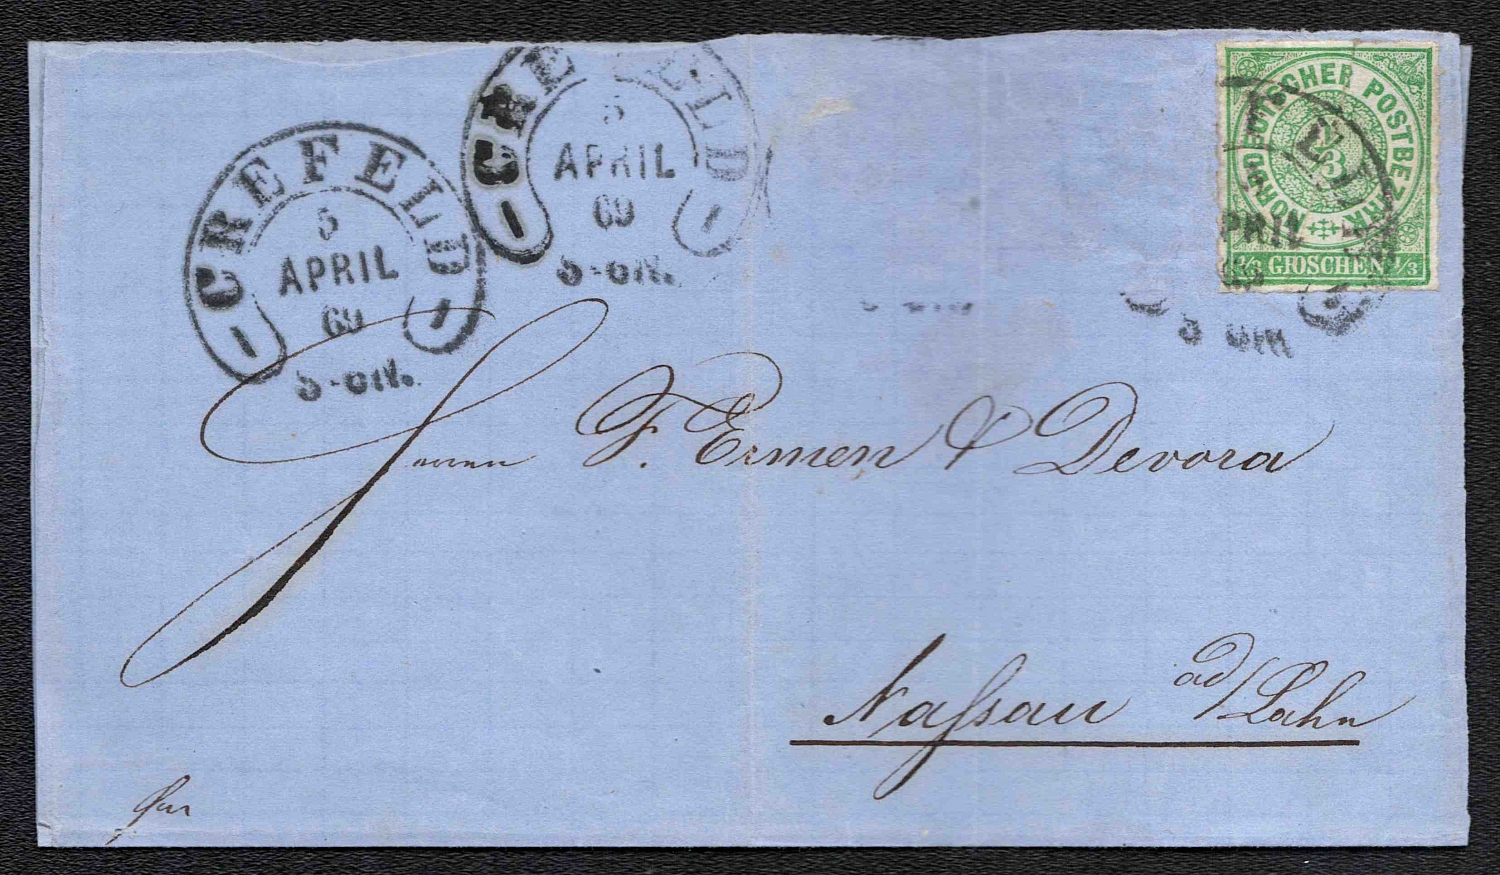 CREFELD
5
APRIL
69
5-6N.
CREFELD
5
APRIL
69
5-6N.
NORDDEUTSCHER POSTBEZIRK
1/3
1/3 GROSCHEN 1/3
PRIL
69
5 6N
Herren F. Ermen & Devora
Nassau a/d Lahn